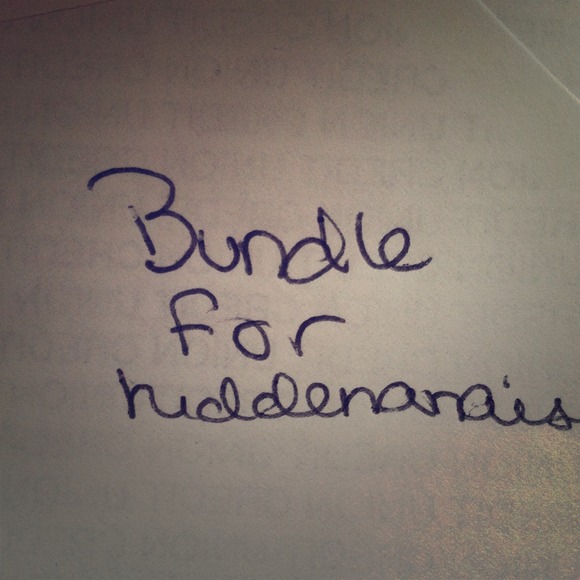 Bundle
for
hiddenanais